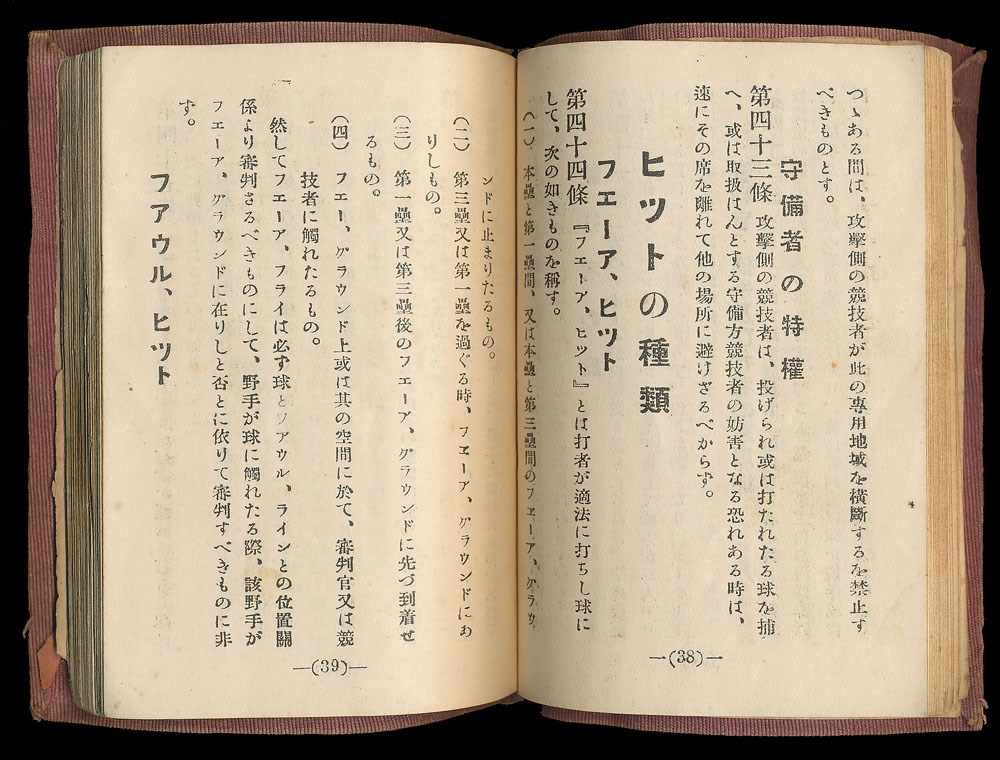 つゝある間は、攻擊側の競技者が此の專用地域を橫斷するを禁止す
べきものとす。
守備者の特權
第四十三條 攻擊側の競技者は、投げられ或は打たれたる球を捕
へ、或は取扱はんとする守備方競技者の妨害となる恐れある時は、
速にその席を離れて他の場所に避けざるべからず。
ヒットの種類
フエーア、ヒット
第四十四條 『フエーア、ヒット』とは打者が適法に打ちし球に
して、次の如きものを稱す。
(一) 本壘と第一壘間、又は本壘と第三壘間のフエーア、グラウ
—(38)—
ンドに止まりたるもの。
(二) 第三壘又は第一壘を過ぐる時、フエーア、グラウンドにあ
りしもの。
(三) 第一壘又は第三壘後のフエーア、グラウンドに先づ到着せ
るもの。
(四) フエー、グラウンド上或は其の空間に於て、審判官又は競
技者に觸れたるもの。
然してフエーア、フライは必ず球とフアウル、ラインとの位置關
係より審判さるべきものにして、野手が球に觸れたる際、該野手が
フエーア、グラウンドに在りしと否とに依りて審判すべきものに非
ず。
フアウル、ヒット
—(39)—